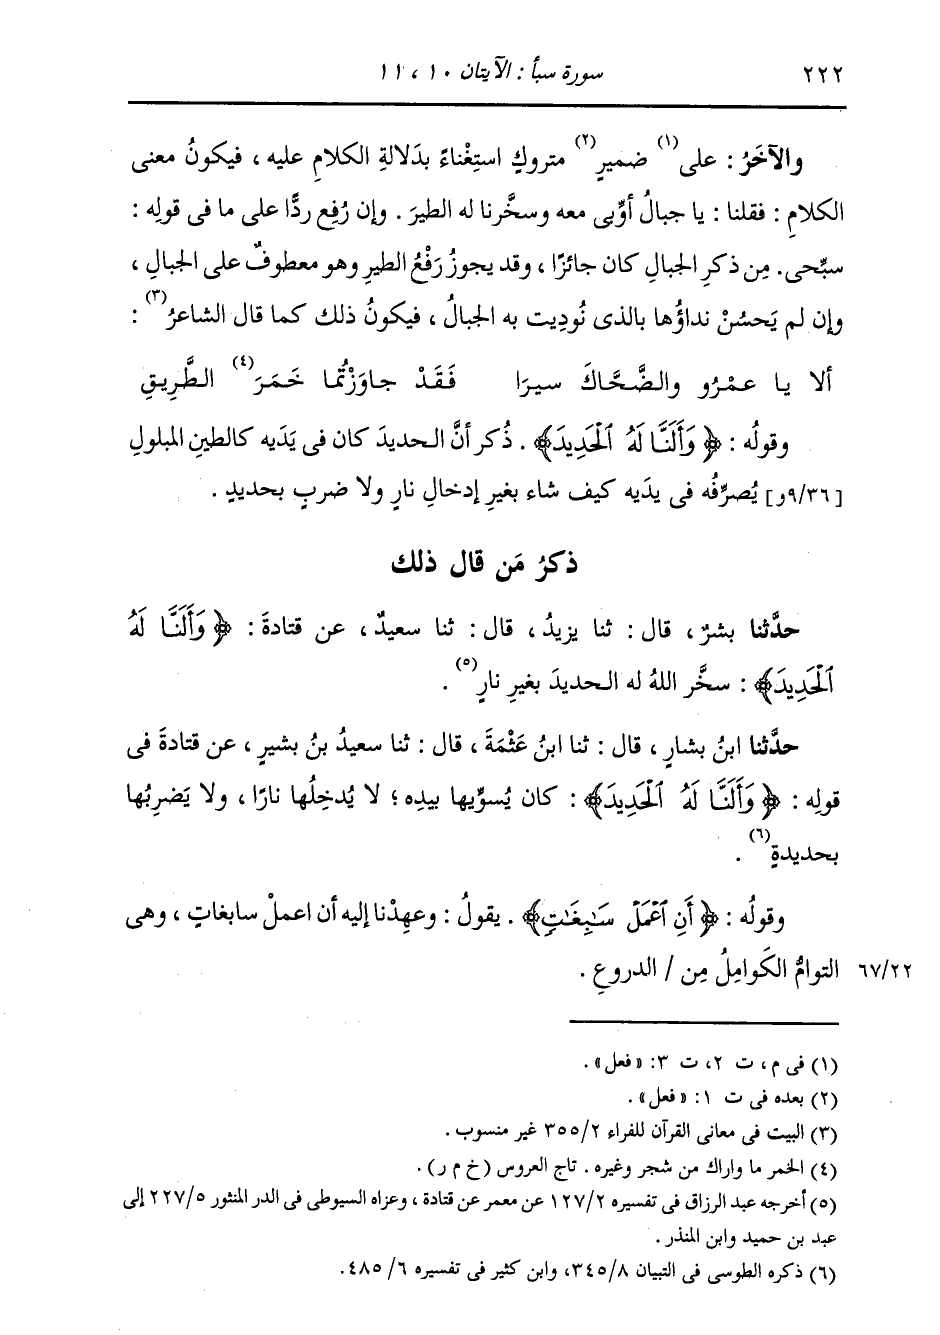 ٢٢٢ سورة سبأ : الآيتان ١٠ ، ١١
والآخَرُ : على(١) ضميرٍ(٢) متروكٍ استِغْناءً بدَلالةِ الكلامِ عليه ، فيكونُ معنى
الكلامِ : فقلنا : يا جبالُ أوِّبى معه وسخَّرنا له الطيرَ . وإن رُفِع ردًّا على ما فى قولِه :
سبِّحى. مِن ذكرِ الجبالِ كان جائزًا ، وقد يجوزُ رَفْعُ الطيرِ وهو معطوفٌ على الجبالِ ،
وإن لم يَحسُنْ نداؤُها بالذى نُودِيت به الجبالُ ، فيكونُ ذلك كما قال الشاعرُ(٣) :
ألا يا عمْرُو والضَّحَّاكَ سيرَا فَقَدْ جاوَزْتُما خَمَرَ(٤) الطَّرِيقِ
وقولُه : ﴿ وَأَلَنَّا لَهُ ٱلْحَدِيدَ﴾ . ذُكر أنَّ الحديدَ كان فى يَدَيه كالطينِ المبلولِ
[٩/٣٦و] يُصرِّفُه فى يدَيه كيف شاء بغيرِ إدخالِ نارٍ ولا ضربٍ بحديدٍ .
ذكرُ مَن قال ذلك
حدَّثنا بشرٌ ، قال : ثنا يزيدُ ، قال : ثنا سعيدٌ ، عن قتادةَ : ﴿ وَأَلَنَّا لَهُ
ٱلْحَدِيدَ﴾ : سخَّر اللهُ له الحديدَ بغيرِ نارٍ(٥) .
حدَّثنا ابنُ بشارٍ ، قال : ثنا ابنُ عَثْمَةَ ، قال : ثنا سعيدُ بنُ بشيرٍ ، عن قتادةَ فى
قولِه : ﴿ وَأَلَنَّا لَهُ ٱلْحَدِيدَ﴾ : كان يُسوِّيها بيدِه ؛ لا يُدخِلُها نارًا ، ولا يَضرِبُها
بحديدةٍ(٦) .
وقولُه : ﴿ أَنِ ٱعْمَلْ سَٰبِغَٰتٍ﴾ . يقولُ : وعهِدْنا إليه أن اعملْ سابغاتٍ ، وهى
التوامُّ الكَوامِلُ مِن / الدروعِ . ٦٧/٢٢
(١) فى م ، ت ٢، ت ٣: «فعل» .
(٢) بعده فى ت ١: «فعل» .
(٣) البيت فى معانى القرآن للفراء ٣٥٥/٢ غير منسوب .
(٤) الخمر ما واراك من شجر وغيره . تاج العروس (خ م ر) .
(٥) أخرجه عبد الرزاق فى تفسيره ١٢٧/٢ عن معمر عن قتادة ، وعزاه السيوطى فى الدر المنثور ٢٢٧/٥ إلى
عبد بن حميد وابن المنذر .
(٦) ذكره الطوسى فى التبيان ٣٤٥/٨، وابن كثير فى تفسيره ٤٨٥/٦.